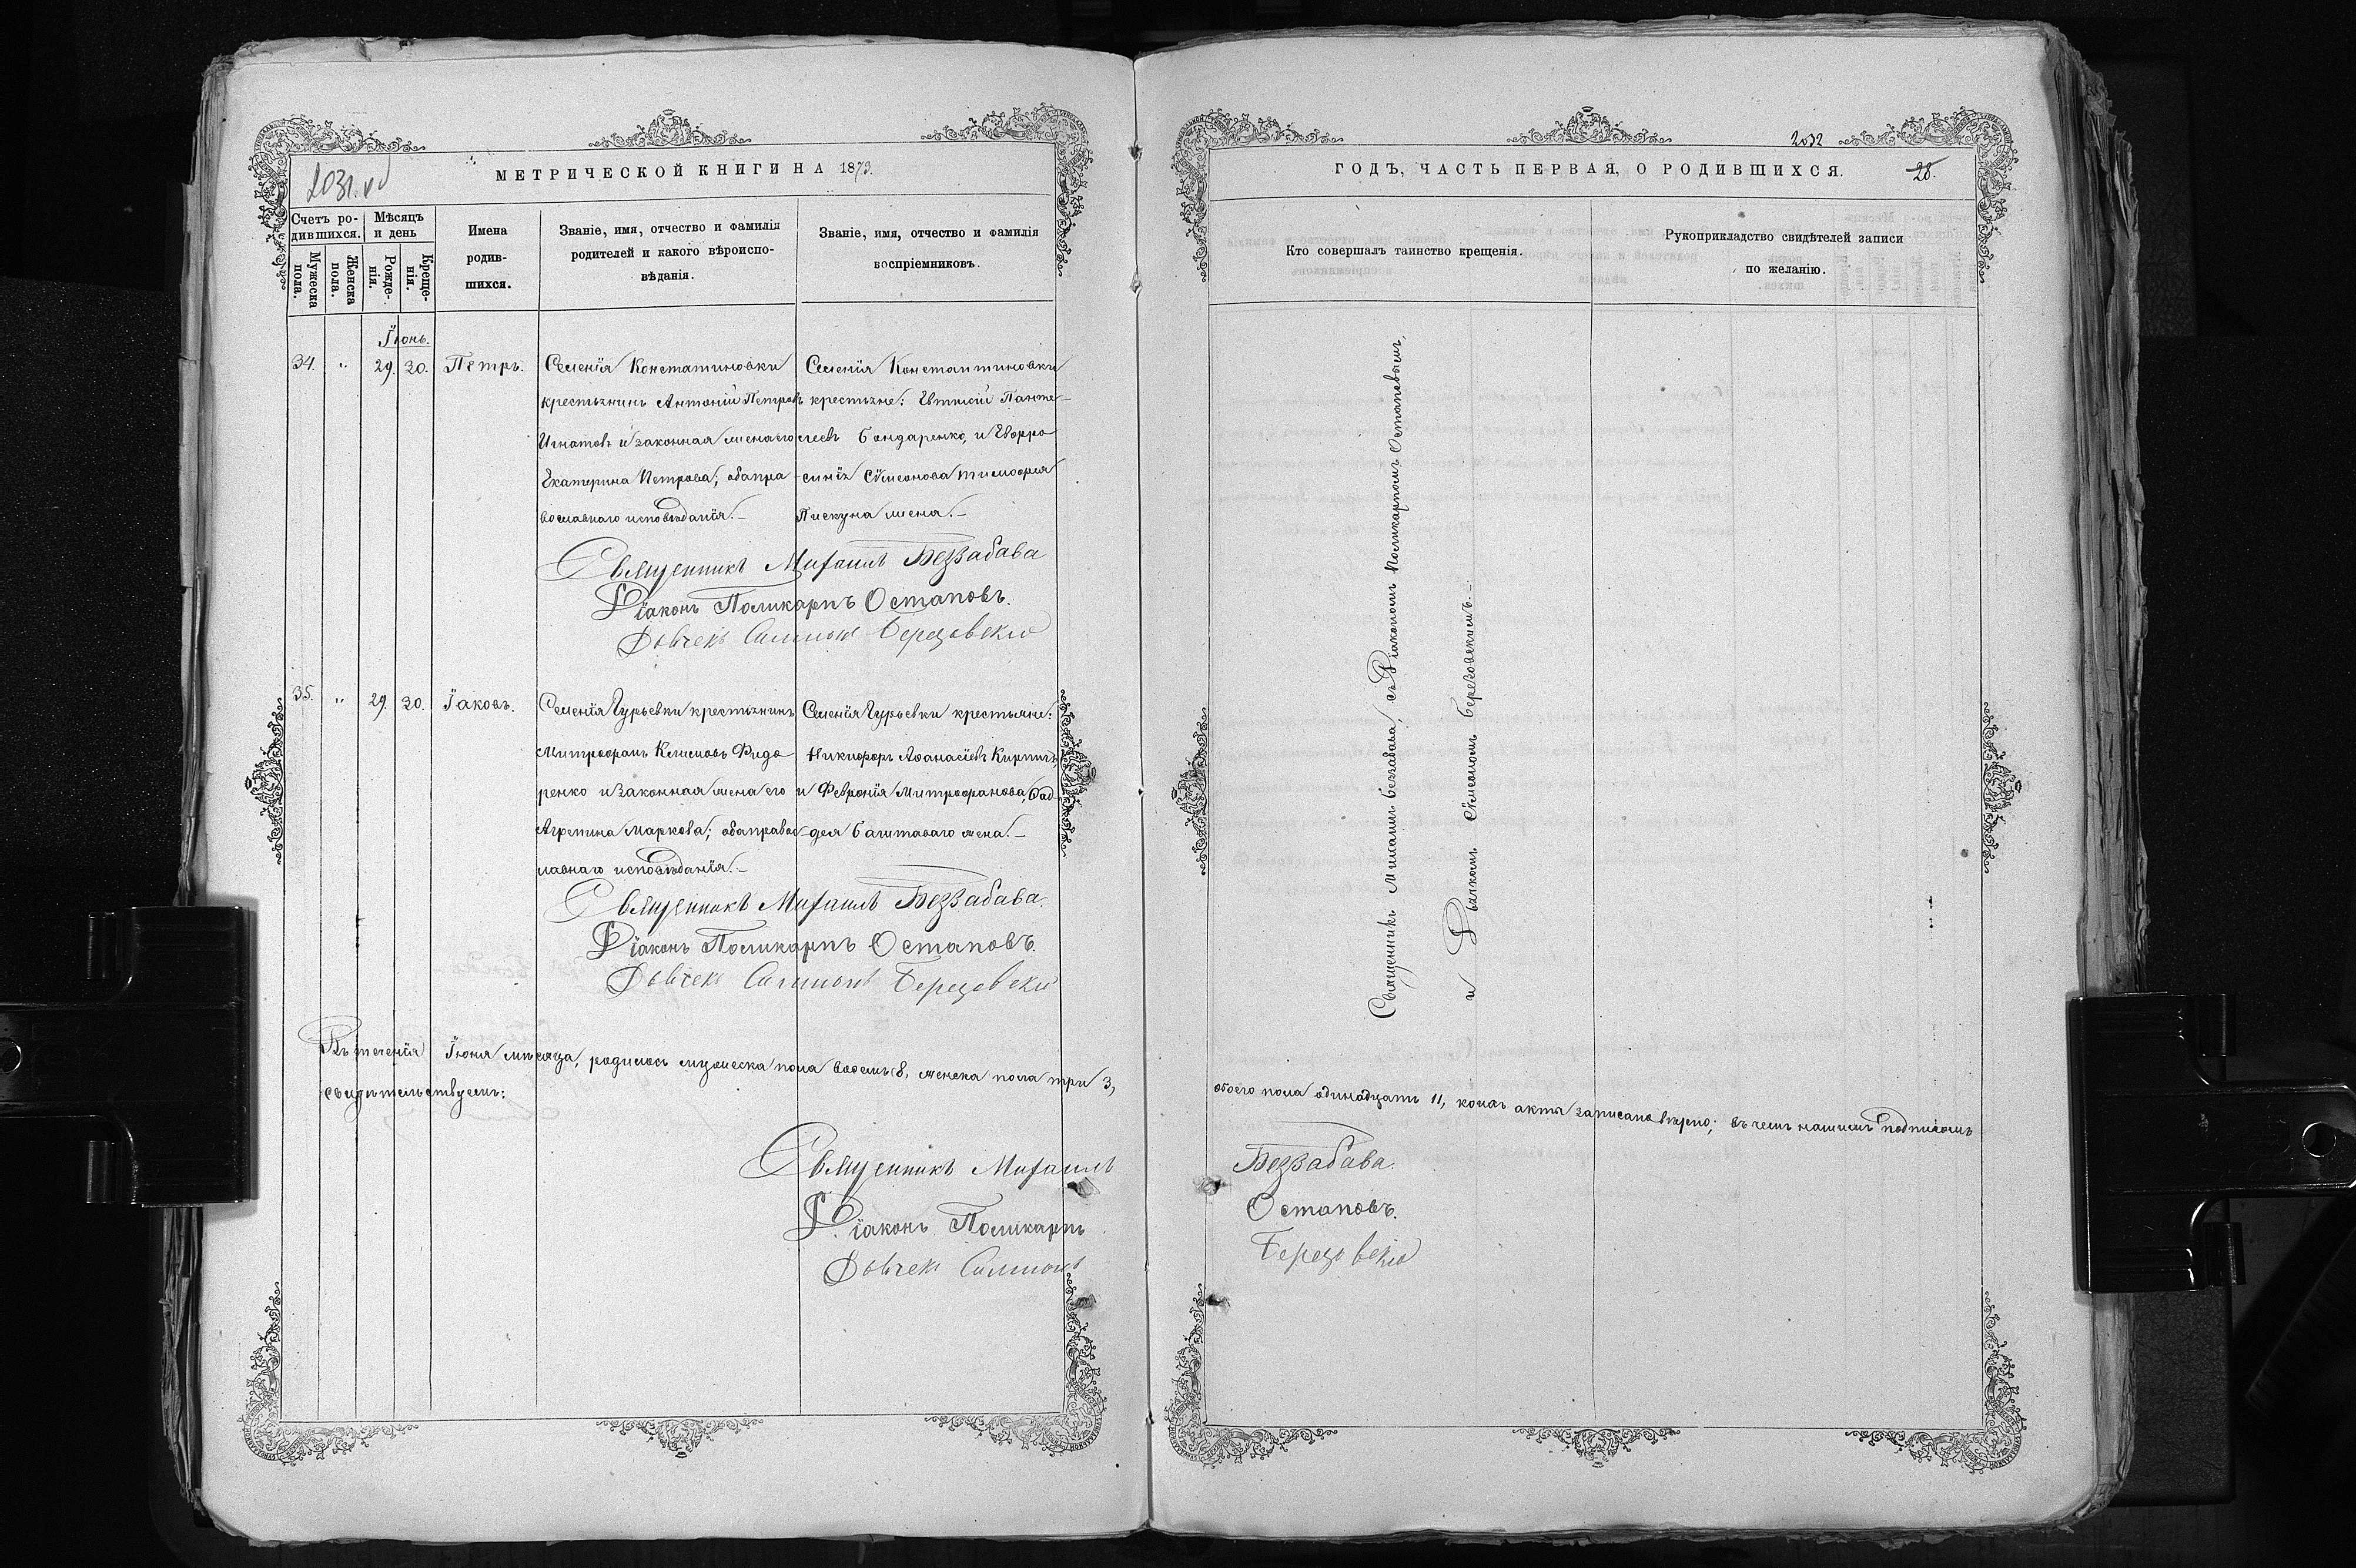 2031 vd
МЕТРИЧЕСКОЙ КНИГИ НА 1873.
Счетъ ро-
дившихся.
Мѣсяцъ
и день
Мужеска пола.
Женска пола.
Рожде-
нія.
Креще-
нія.
Имена
родив-
шихся.
Званіе, имя, отчество и фамилія
родителей и какого вѣроиспо-
вѣданія.
Званіе, имя, отчество и фамилія
воспріемниковъ.
Іюнь.
34. " 29. 30. Петръ.
Селенія Константиновки
крестьянинъ Антоній Петровъ
Игнатовъ и законная жена его
Екатерина Петрова; оба пра-
вославнаго исповѣданія.-
Селенія Константиновки
крестьяне: Евтихій Панте-
леевъ Бондаренко, и Евфро-
синія Сѵмеонова Тимофея
Пискуна жена.-
Священникъ Михаилъ Беззабава
Діаконъ Поликарпъ Остаповъ.
Дьячекъ Симионъ Березовскій
35. " 29. 30. Іаковъ.
Селенія Гурьевки крестьянинъ
Митрофанъ Климовъ Фидо
ренко и законная жена его
Агрепина Маркова; оба правос-
лавнаго исповѣданія.-
Селенія Гурьевки крестьяне:
Никифоръ Аѳанасіевъ Кирпичъ,
и Февронія Митрофанова,
Баштаваго жена.-
Священникъ Михаилъ Беззабава.
Діаконъ Поликарпъ Остаповъ.
Дьячекъ Симионъ Березовскій
Въ теченія Іюня мѣсяца, родилось мужеска пола восемь 8, женска пола три 3,
свидѣтельствуемъ:
Священникъ Михаилъ
Діаконъ Поликарпъ
Дьячекъ Симионъ
2032
ГОДЪ, ЧАСТЬ ПЕРВАЯ, О РОДИВШИХСЯ.
28.
Кто совершалъ таинство крещенія.
Рукоприкладство свидѣтелей записи
по желанію.
Священникъ Михаилъ Беззабава, съ Діакономъ Поликарпомъ Остаповымъ,
и Дьячкомъ Сѵмеономъ Березовскимъ.-
обоего пола одинадцать 11, коихъ акты записано вѣрно; въ чемъ нашимъ подписомъ
Беззабава.
Остаповъ.
Березовскій